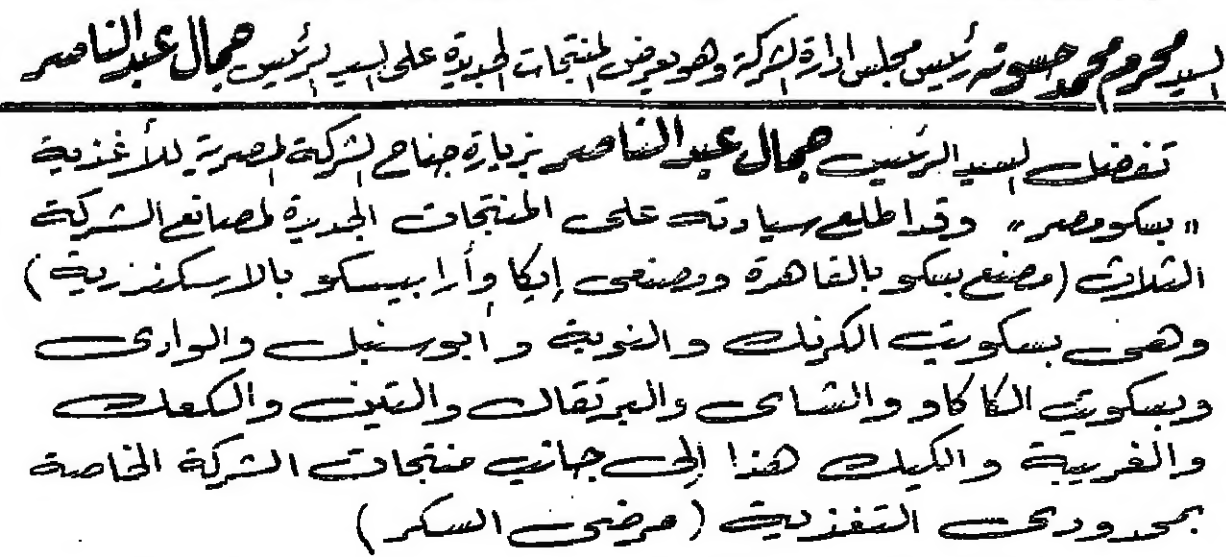 السيد محرم محمد حسونه رئيس مجلس ادارة الشركة وهو يعرض المنتجات الجديدة على السيد الرئيس جمال عبد الناصر
تفضل السيد الرئيس جمال عبد الناصر بزيارة جناح الشركة المصرية للأغذية
" بسكو مصر " وقد اطلع سيادته على المنتجات الجديدة لمصانع الشركة
الثلاث ( مصنع بسكو بالقاهرة ومصنعى إيكا وأرابيسكو بالاسكندرية )
وهى بسكويت الكرنك والنوبة وأبوسنبل والوادى
وبسكويت الكاكاو والشاى والبرتقال والتين والكعك
والغريبة والكيك هذا إلى جانب منتجات الشركة الخاصة
بمحدودى التغذية ( مرضى السكر )